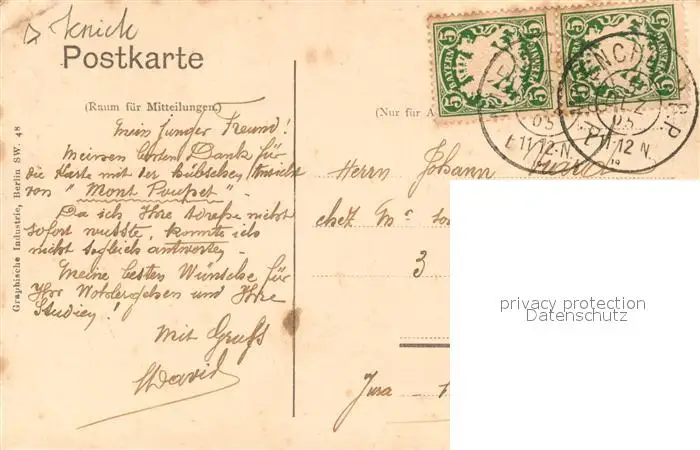 knick
Postkarte
(Raum für Mitteilungen.)
Mein junger Freund!
Meinen besten Dank für
die Karte mit der hübschen Ansicht
von "Mont Poupet" -
Da ich Ihre Adresse nicht
sofort wusste, konnte ich
nicht sogleich antworten -
Meine besten Wünsche für
Ihr Wohlergehen und Ihre
Studien!
Mit Gruss
David
Graphische Industrie, Berlin SW. 48
5 5
5 5
(Nur für A
Herrn Johann
chez Mc
3
Jura
05
11 12 N
05
11 12 N
privacy protection
Datenschutz